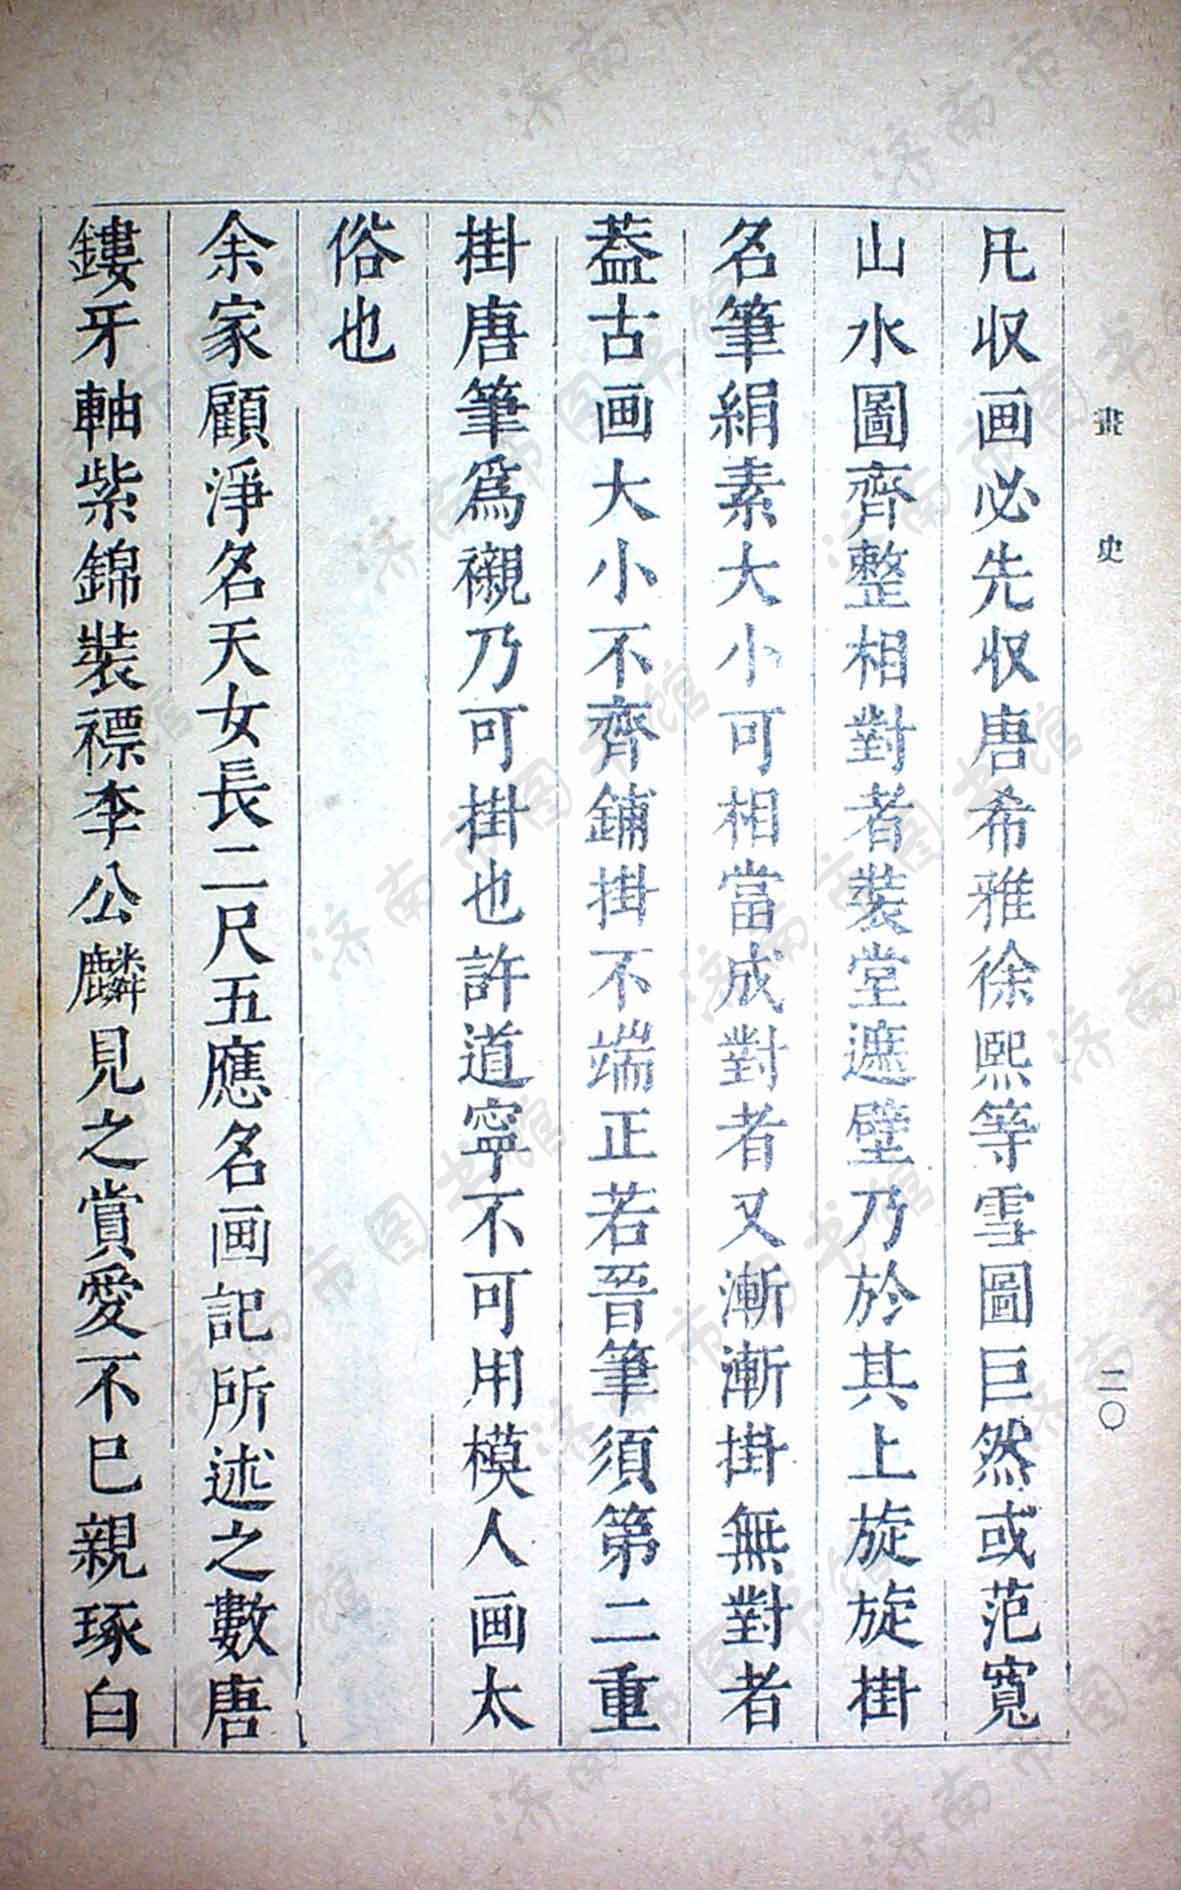 畫史
二〇
凡収画必先収唐希雅徐熙等雪圖巨然或范寬
山水圖齊整相對者裝堂遮壁乃於其上旋旋掛
名筆絹素大小可相當成對者又漸漸掛無對者
葢古画大小不齊鋪掛不端正若晉筆須第二重
掛唐筆爲襯乃可掛也許道寧不可用模人画太
俗也
余家顧淨名天女長二尺五應名画記所述之數唐
鏤牙軸紫錦裝褾李公麟見之賞愛不已親琢白
济南市图书馆